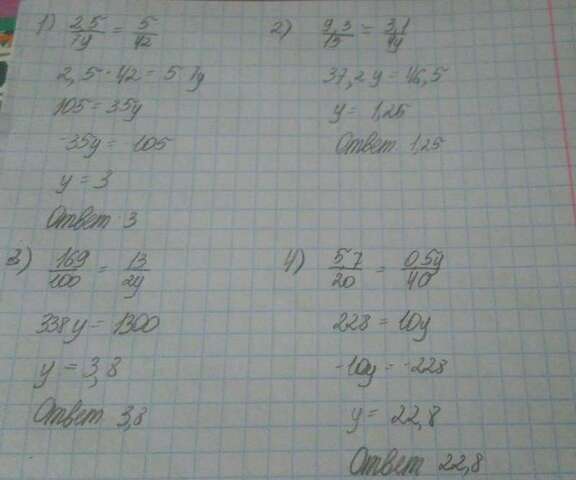 1) 2,5/7y = 5/42
2,5 · 42 = 5 · 7y
105 = 35y
-35y = 105
y = 3
Ответ 3
2) 9,3/15 = 3,1/4y
37,2y = 46,5
y = 1,25
Ответ 1,25
3) 169/100 = 13/2y
338y = 1300
y = 3,8
Ответ 3,8
4) 5,7/20 = 0,5y/40
228 = 10y
-10y = -228
y = 22,8
Ответ 22,8